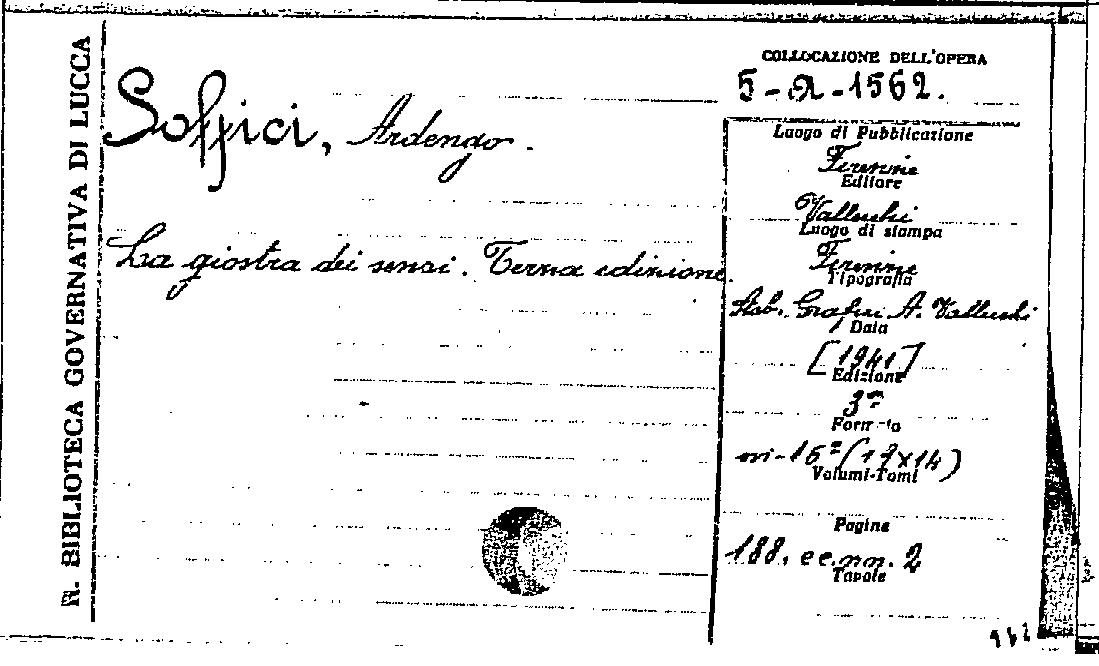 R. BIBLIOTECA GOVERNATIVA DI LUCCA
Soffici, Ardengo.
La giostra dei sensi. Terza edizione.
COLLOCAZIONE DELL'OPERA
5-a-1562.
Luogo di Pubblicazione
Firenze
Editore
Vallecchi
Luogo di stampa
Firenze
Tipografia
Stab. Grafici A. Vallecchi
Data
[1941]
Edizione
3ª
Formato
in-16º (17x14)
Volumi-Tomi
Pagine
188, cc. nn. 2
Tavole